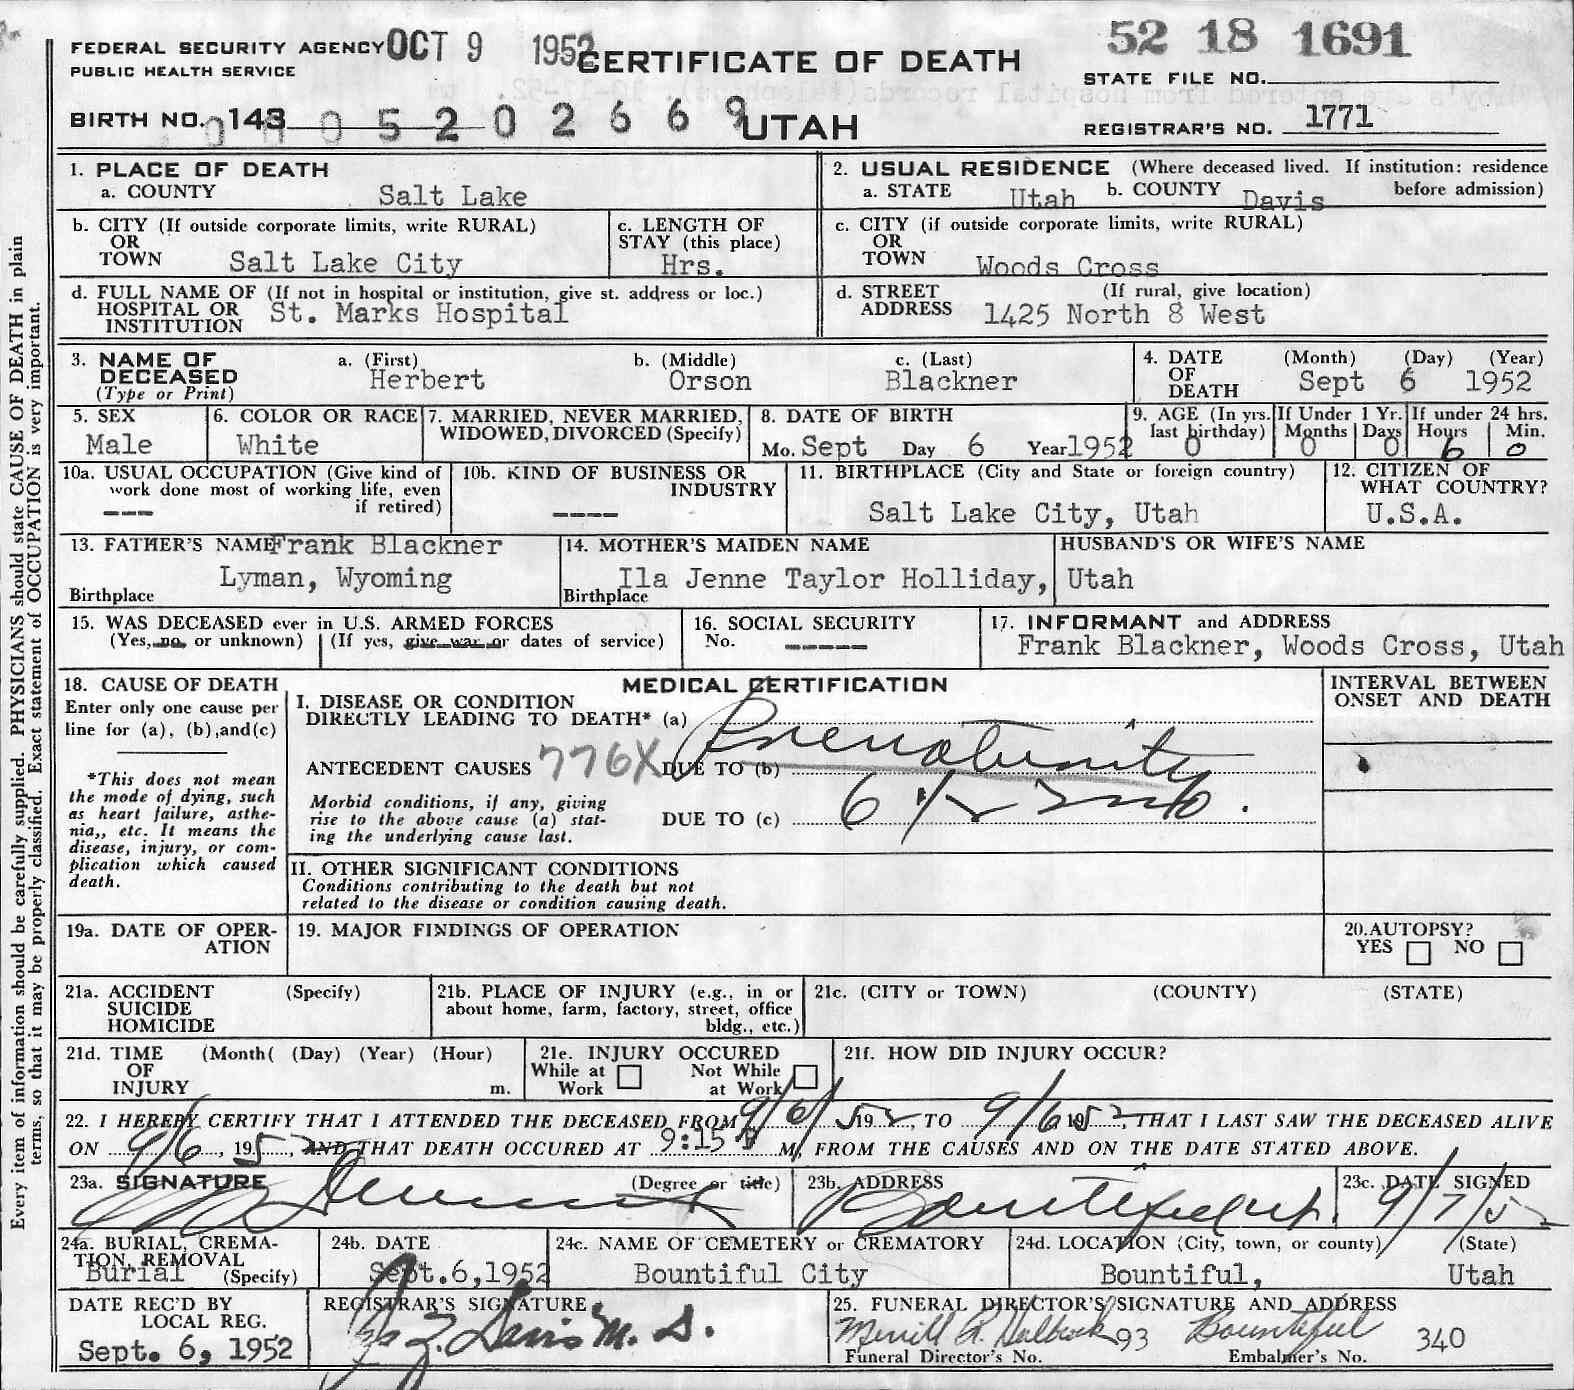 FEDERAL SECURITY AGENCY OCT 9 1952 CERTIFICATE OF DEATH 52 18 1691
PUBLIC HEALTH SERVICE STATE FILE NO.
BIRTH NO. 143 05202669 UTAH REGISTRAR'S NO. 1771
1. PLACE OF DEATH
a. COUNTY Salt Lake
2. USUAL RESIDENCE (Where deceased lived. If institution: residence before admission)
a. STATE Utah b. COUNTY Davis
b. CITY (If outside corporate limits, write RURAL)
OR
TOWN Salt Lake City
c. LENGTH OF
STAY (this place)
Hrs.
c. CITY (if outside corporate limits, write RURAL)
OR
TOWN Woods Cross
d. FULL NAME OF (If not in hospital or institution, give st. address or loc.)
HOSPITAL OR
INSTITUTION St. Marks Hospital
d. STREET (If rural, give location)
ADDRESS 1425 North 8 West
3. NAME OF
DECEASED
(Type or Print)
a. (First) b. (Middle) c. (Last)
Herbert Orson Blackner
4. DATE (Month) (Day) (Year)
OF
DEATH Sept 6 1952
5. SEX
Male
6. COLOR OR RACE
White
7. MARRIED, NEVER MARRIED,
WIDOWED, DIVORCED (Specify)
8. DATE OF BIRTH
Mo. Sept Day 6 Year 1952
9. AGE (In yrs.
last birthday)
0
If Under 1 Yr.
Months Days
0 0
If under 24 hrs.
Hours Min.
6 0
10a. USUAL OCCUPATION (Give kind of
work done most of working life, even
if retired)
---
10b. KIND OF BUSINESS OR
INDUSTRY
----
11. BIRTHPLACE (City and State or foreign country)
Salt Lake City, Utah
12. CITIZEN OF
WHAT COUNTRY?
U.S.A.
13. FATHER'S NAME Frank Blackner
Lyman, Wyoming
Birthplace
14. MOTHER'S MAIDEN NAME
Ila Jenne Taylor Holliday, Utah
Birthplace
HUSBAND'S OR WIFE'S NAME
15. WAS DECEASED ever in U.S. ARMED FORCES
(Yes, no, or unknown) (If yes, give war or dates of service)
16. SOCIAL SECURITY
No. -----
17. INFORMANT and ADDRESS
Frank Blackner, Woods Cross, Utah
18. CAUSE OF DEATH
Enter only one cause per
line for (a), (b), and (c)
*This does not mean
the mode of dying, such
as heart failure, asthe-
nia,, etc. It means the
disease, injury, or com-
plication which caused
death.
MEDICAL CERTIFICATION
I. DISEASE OR CONDITION
DIRECTLY LEADING TO DEATH* (a) Prematurity
ANTECEDENT CAUSES 776X DUE TO (b)
Morbid conditions, if any, giving
rise to the above cause (a) stat-
ing the underlying cause last.
DUE TO (c) 6 1/2 mo.
INTERVAL BETWEEN
ONSET AND DEATH
II. OTHER SIGNIFICANT CONDITIONS
Conditions contributing to the death but not
related to the disease or condition causing death.
19a. DATE OF OPER-
ATION
19. MAJOR FINDINGS OF OPERATION
20. AUTOPSY?
YES NO
21a. ACCIDENT (Specify)
SUICIDE
HOMICIDE
21b. PLACE OF INJURY (e.g., in or
about home, farm, factory, street, office
bldg., etc.)
21c. (CITY or TOWN) (COUNTY) (STATE)
21d. TIME (Month( (Day) (Year) (Hour)
OF
INJURY m.
21e. INJURY OCCURED
While at Work
Not While at Work
21f. HOW DID INJURY OCCUR?
22. I HEREBY CERTIFY THAT I ATTENDED THE DECEASED FROM 9/6/ 1952, TO 9/6 1952, THAT I LAST SAW THE DECEASED ALIVE
ON 9/6, 1952, AND THAT DEATH OCCURED AT 9:15 P M, FROM THE CAUSES AND ON THE DATE STATED ABOVE.
23a. SIGNATURE (Degree or title)
23b. ADDRESS
Bountiful Ut.
23c. DATE SIGNED
9/7/52
24a. BURIAL, CREMA-
TION, REMOVAL
Burial (Specify)
24b. DATE
Sept. 6, 1952
24c. NAME OF CEMETERY or CREMATORY
Bountiful City
24d. LOCATION (City, town, or county) (State)
Bountiful, Utah
DATE REC'D BY
LOCAL REG.
Sept. 6, 1952
REGISTRAR'S SIGNATURE
Davis M.D.
25. FUNERAL DIRECTOR'S SIGNATURE AND ADDRESS
Merrill R. Holbrook 93 Bountiful 340
Funeral Director's No. Embalmer's No.
Every item of information should be carefully supplied. PHYSICIANS should state CAUSE OF DEATH in plain
terms, so that it may be properly classified. Exact statement of OCCUPATION is very important.